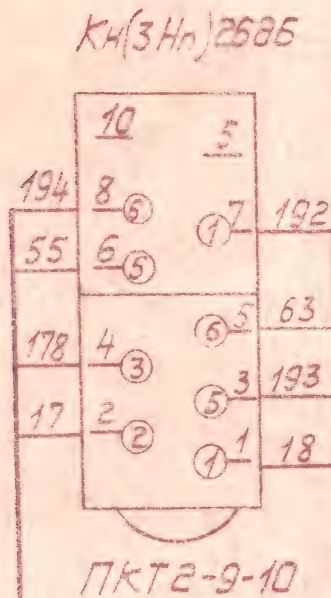 Кн(3Нп)2БВБ
10 5
194 8 6 1 7 192
55 6 5
6 5 63
178 4 3
5 3 193
17 2 2
1 1 18
ПКТ2-9-10